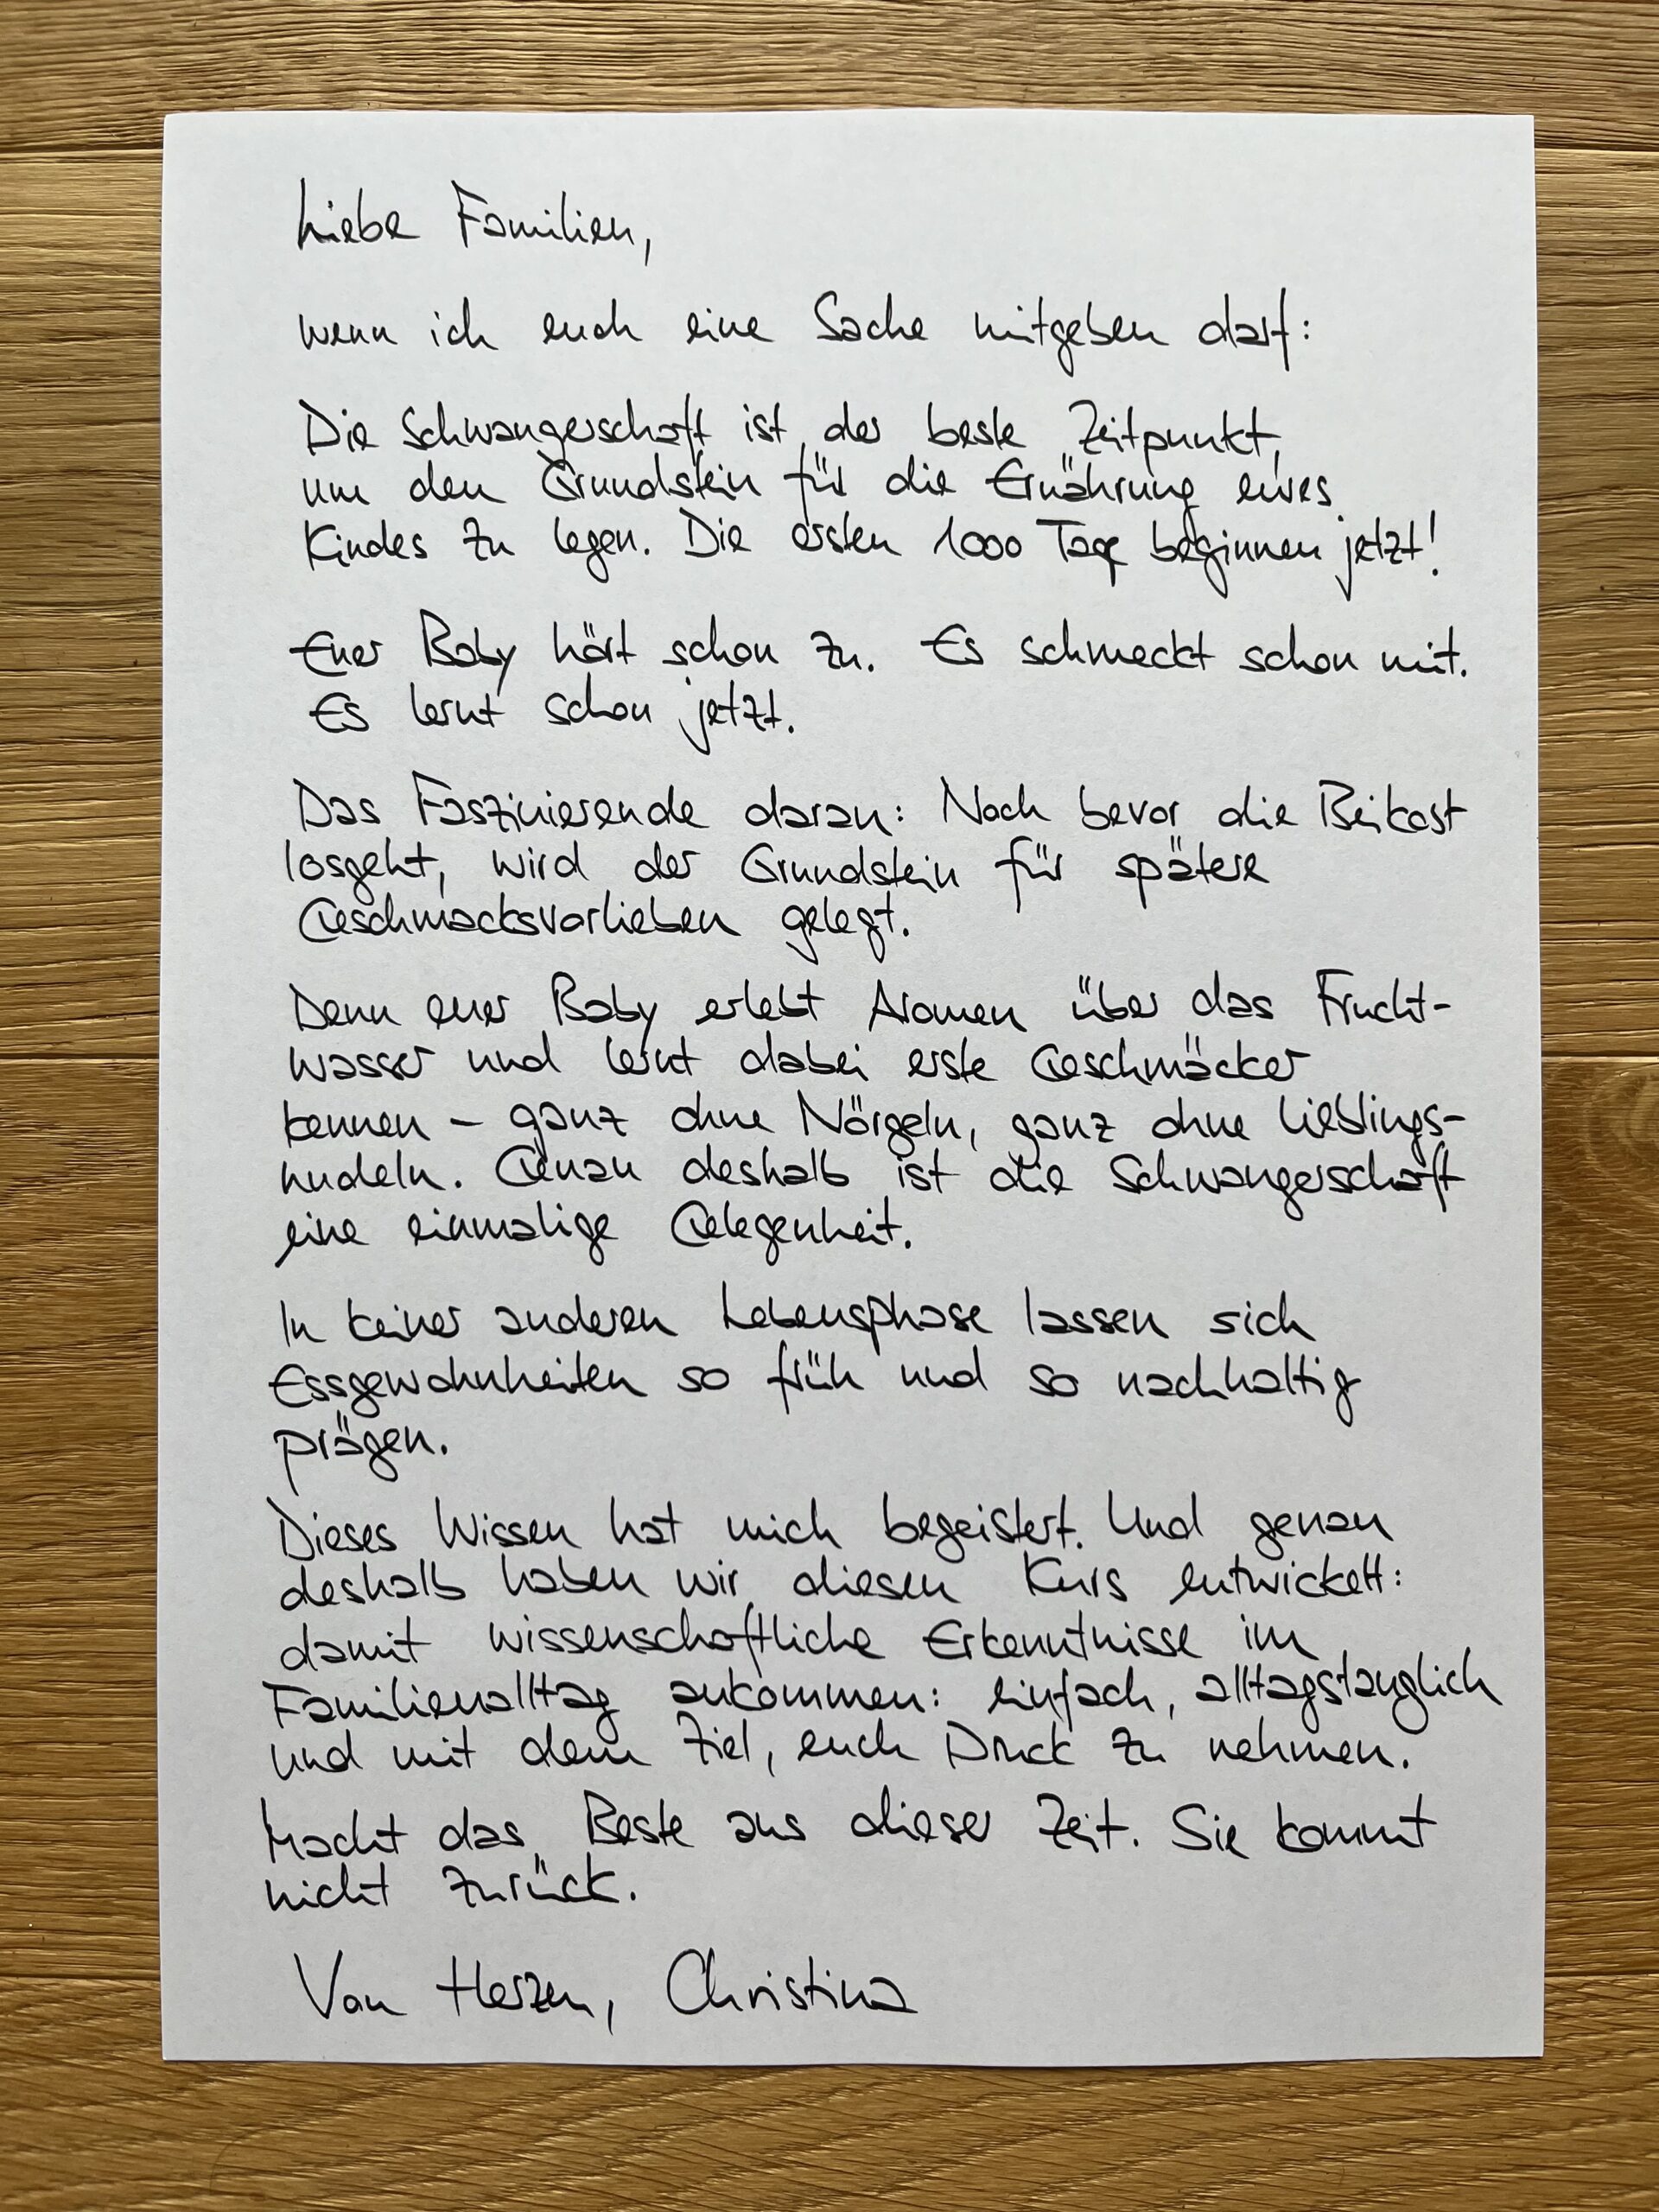 Liebe Familien,
wenn ich euch eine Sache mitgeben darf:
Die Schwangerschaft ist der beste Zeitpunkt,
um den Grundstein für die Ernährung eures
Kindes zu legen. Die ersten 1000 Tage beginnen jetzt!
Euer Baby hört schon zu. Es schmeckt schon mit.
Es lernt schon jetzt.
Das Faszinierende daran: Noch bevor die Beikost
losgeht, wird der Grundstein für spätere
Geschmacksvorlieben gelegt.
Denn euer Baby erlebt Aromen über das Frucht-
wasser und lernt dabei erste Geschmäcker
kennen – ganz ohne Nörgeln, ganz ohne Lieblings-
nudeln. Genau deshalb ist die Schwangerschaft
eine einmalige Gelegenheit.
In keiner anderen Lebensphase lassen sich
Essgewohnheiten so früh und so nachhaltig
prägen.
Dieses Wissen hat mich begeistert. Und genau
deshalb haben wir diesen Kurs entwickelt:
damit wissenschaftliche Erkenntnisse im
Familienalltag ankommen: einfach, alltagstauglich
und mit dem Ziel, euch Druck zu nehmen.
Macht das Beste aus dieser Zeit. Sie kommt
nicht zurück.
Von Herzen, Christina